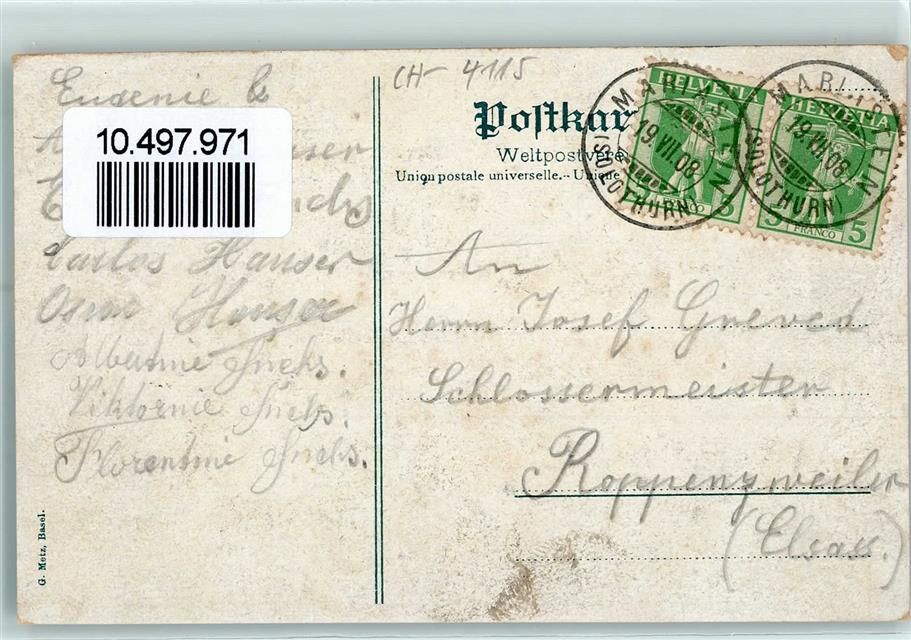 Eugenie &
10.497.971
Carlos Hauser
Oscar Hauser
Albertine Fuchs.
Viktorine Fuchs.
Florentine Fuchs.
G. Metz, Basel.
CH- 4115
Postkar
Weltpostvere
Union postale universelle. - Unione
HELVETIA
FRANCO
5
HELVETIA
5 FRANCO 5
MARIASTEIN
19.VII.08
(SOLOTHURN)
MARIASTEIN
19.VII.08
(SOLOTHURN)
An
Herrn Josef
Schlossermeister
Roppenzweiler
(Elsass.)